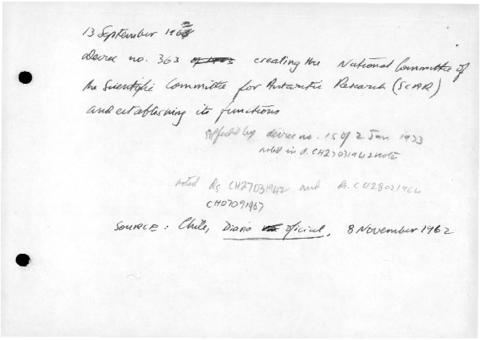 13 September 1962
Decree no. 363 creating the National Committee of
the Scientific Committee for Antarctic Research (SCAR)
and establishing its functions
by decree no. 15 of 2 Jan 1933
noted in
noted CH27031942 and
CH07091967
SOURCE: Chile, Diario Oficial, 8 November 1962